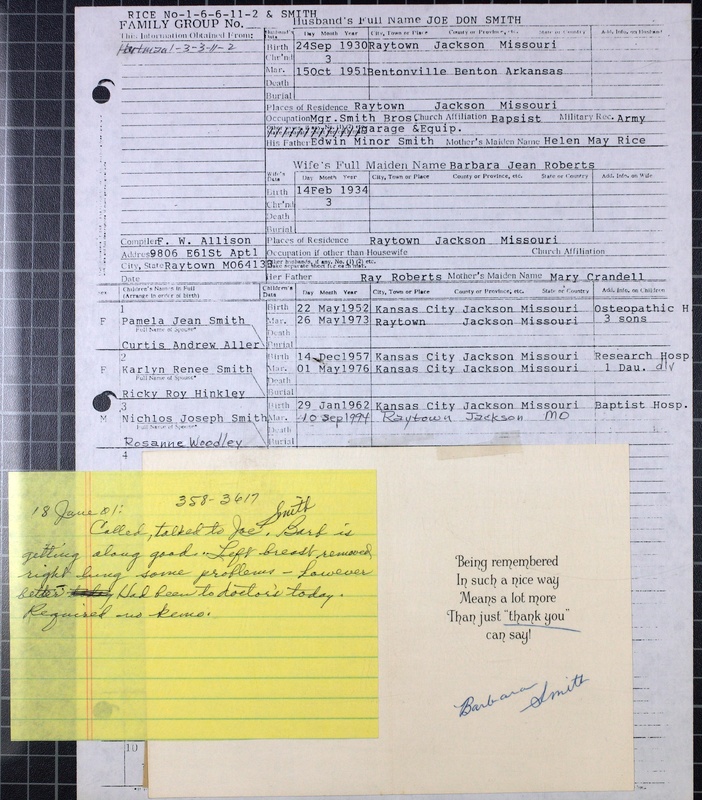 RICE No-1-6-6-11-2 & SMITH
Husband's Full Name JOE DON SMITH
FAMILY GROUP No.
This Information Obtained From:
Husband's Data Day Month Year City, Town or Place County or Province, etc. State or Country Add. Info. on Husband
-3-3-11-2
Birth 24Sep 1930 Raytown Jackson Missouri
Chr'nd 3
Mar. 15Oct 1951 Bentonville Benton Arkansas
Death
Burial
Places of Residence Raytown Jackson Missouri
Occupation Mgr.Smith Bros. Church Affiliation Bapsist Military Rec. Army
garage &Equip.
His Father Edwin Minor Smith Mother's Maiden Name Helen May Rice
Wife's Full Maiden Name Barbara Jean Roberts
Wife's Data Day Month Year City, Town or Place County or Province, etc. State or Country Add. Info. on Wife
Birth 14Feb 1934
Chr'nd 3
Death
Burial
Compiler F. W. Allison Places of Residence Raytown Jackson Missouri
Address 9806 E61St Apt1 Occupation if other than Housewife Church Affiliation
City, State Raytown MO64133 Her husbands, if any, No. (1) (2) etc.
Her Father Ray Roberts Mother's Maiden Name Mary Crandell
Children's Names in Full
(Arrange in order of birth)
Children's Data Day Month Year City, Town or Place County or Province, etc. State or Country Add. Info. on Children
1 Birth 22 May1952 Kansas City Jackson Missouri Osteopathic H.
F Pamela Jean Smith Mar. 26 May1973 Raytown Jackson Missouri 3 sons
Full Name of Spouse* Death
Curtis Andrew Aller Burial
2 Birth 14 Dec1957 Kansas City Jackson Missouri Research Hosp.
F Karlyn Renee Smith Mar. 01 May1976 Kansas City Jackson Missouri 1 Dau. div
Full Name of Spouse* Death
Ricky Roy Hinkley Burial
3 Birth 29 Jan1962 Kansas City Jackson Missouri Baptist Hosp.
M Nichlos Joseph Smith Mar. 10 Sep1994 Raytown Jackson MO
Full Name of Spouse* Death
Rosanne Woodley Burial
4
18 June 01: 358-3617
Smith
Called, talked to Joe. Barb is
getting along good. Left breast removed,
right lung some problems - however
better Had been to doctor's today.
Required no kemo.
Being remembered
In such a nice way
Means a lot more
Than just "thank you"
can say!
Barbara Smith
10